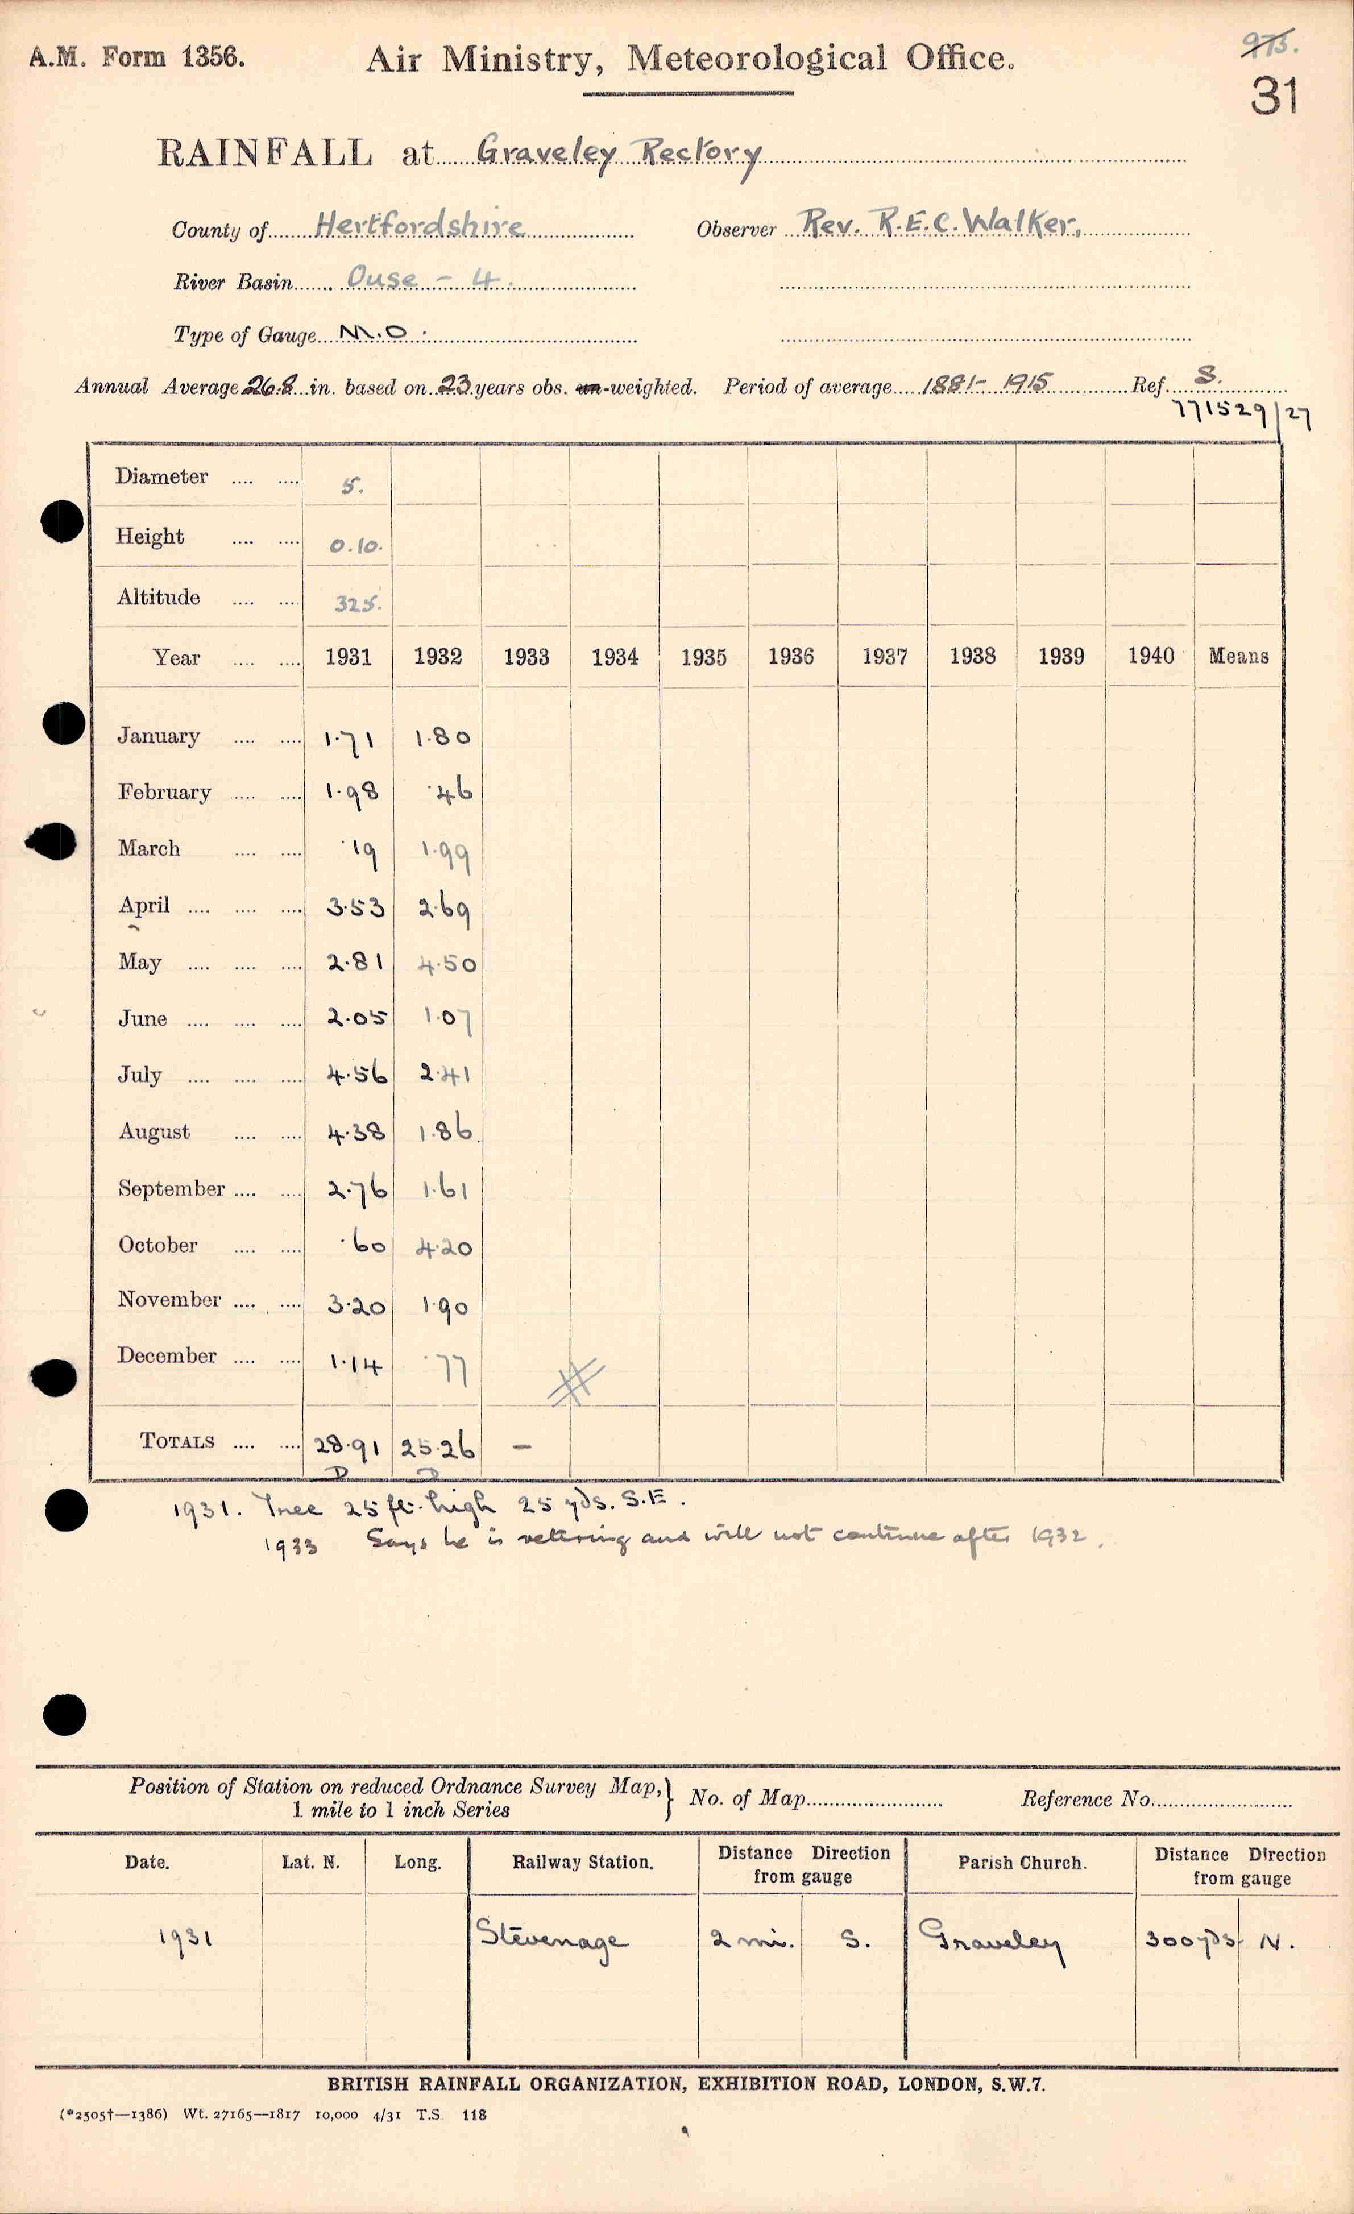 A.M. Form 1356. Air Ministry, Meteorological Office. 973.
31
RAINFALL at Graveley Rectory
County of Hertfordshire Observer Rev. R.E.C. Walker,
River Basin Ouse - 4.
Type of Gauge M.O.
Annual Average 26.8 in. based on 23 years obs. un-weighted. Period of average 1881-1915 Ref. S.
771529/27
Diameter .... .... 5.
Height .... .... 0.10.
Altitude .... .... 325.
Year .... .... 1931 1932 1933 1934 1935 1936 1937 1938 1939 1940 Means
January .... .... 1.71 1.80
February .... .... 1.98 .46
March .... .... .19 1.99
April .... .... .... 3.53 2.69
May .... .... .... 2.81 4.50
June .... .... .... 2.05 1.07
July .... .... .... 4.56 2.41
August .... .... 4.38 1.86
September .... .... 2.76 1.61
October .... .... .60 4.20
November .... .... 3.20 1.90
December .... .... 1.14 .77
TOTALS .... .... 28.91 25.26 -
D D
1931. Tree 25 ft. high 25 yds. S.E.
1933 Says he is retiring and will not continue after 1932.
Position of Station on reduced Ordnance Survey Map,} No. of Map Reference No.
1 mile to 1 inch Series
Date. Lat. N. Long. Railway Station. Distance Direction from gauge Parish Church. Distance Direction from gauge
1931 Stevenage 2 mi. S. Graveley 300 yds N.
BRITISH RAINFALL ORGANIZATION, EXHIBITION ROAD, LONDON, S.W.7.
(*2505†—1386) Wt. 27165—1817 10,000 4/31 T.S. 118